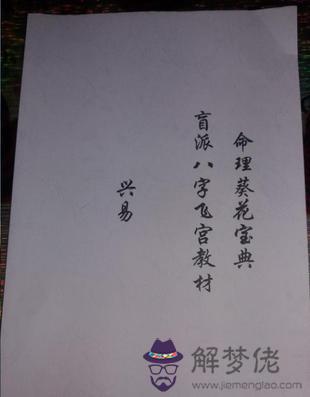 命理葵花宝典
盲派八字飞宫教材
兴易
解梦佬
www.jiemenglao.com